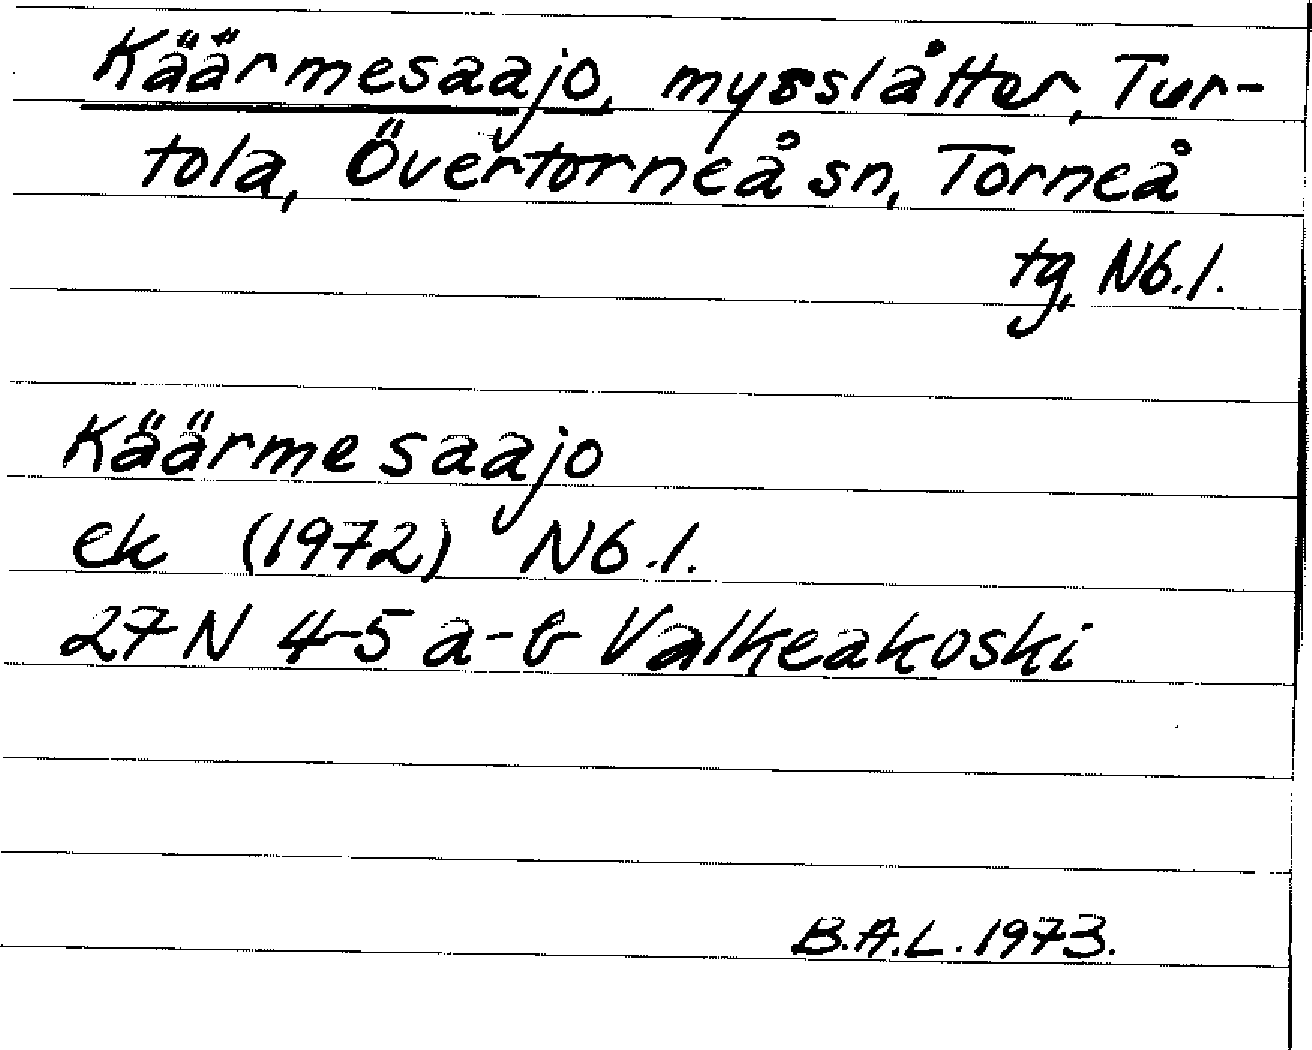 Käärmesaajo, myrslåtter, Tur-
tola, Övertorneå sn, Torneå
tg, Nb.l.
Käärmesaajo
ek (1972) Nb.l.
27N 4-5 a-b Valkeakoski
B.A.L. 1973.